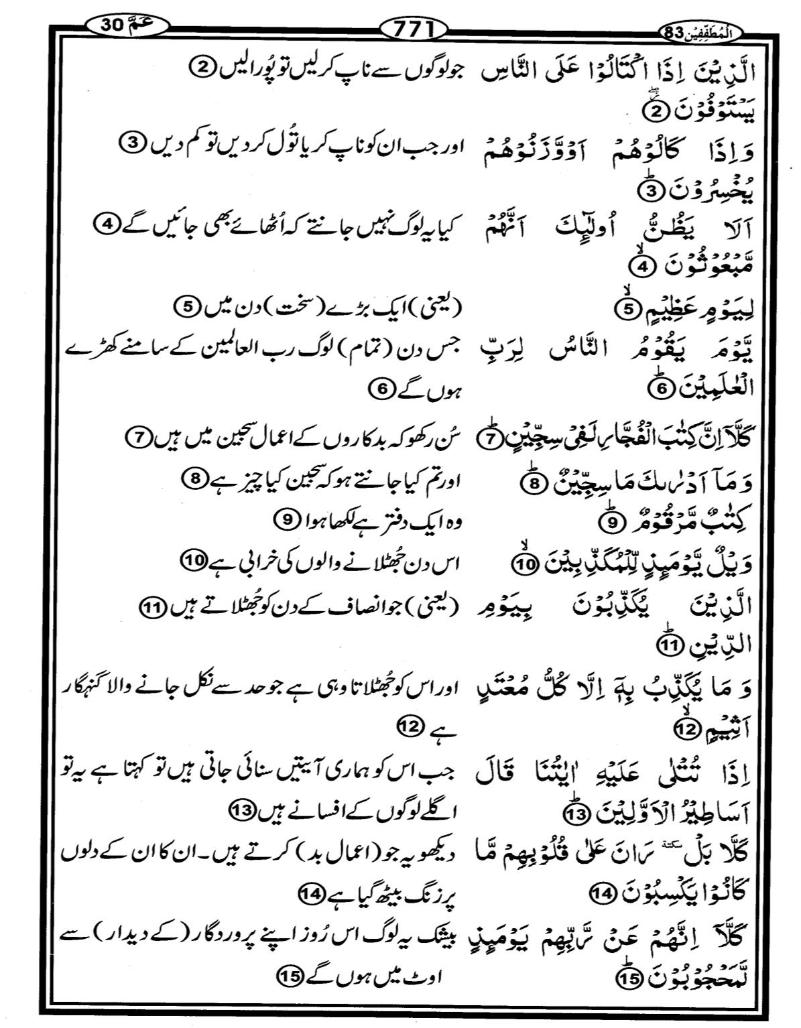 عمّ 30
771
المطففین 83
الَّذِیۡنَ اِذَا اکۡتَالُوۡا عَلَی النَّاسِ جو لوگوں سے ناپ کر لیں تو پُورا لیں ②
یَسۡتَوۡفُوۡنَ ②
وَ اِذَا کَالُوۡهُمۡ اَوۡوَّزَنُوۡهُمۡ اور جب ان کو ناپ کر یا تُول کر دیں تو کم دیں ③
یُخۡسِرُوۡنَ ③
اَلَا یَظُنُّ اُولٰٓئِکَ اَنَّهُمۡ کیا یہ لوگ نہیں جانتے کہ اُٹھائے بھی جائیں گے ④
مَّبۡعُوۡثُوۡنَ ④
لِیَوۡمٍ عَظِیۡمٍ ⑤ (یعنی) ایک بڑے (سخت) دن میں ⑤
یَّوۡمَ یَقُوۡمُ النَّاسُ لِرَبِّ جس دن (تمام) لوگ رب العالمین کے سامنے کھڑے
الۡعٰلَمِیۡنَ ⑥ ہوں گے ⑥
کَلَّاۤ اِنَّ کِتٰبَ الۡفُجَّارِ لَفِیۡ سِجِّیۡنٍ ⑦ سُن رکھو کہ بدکاروں کے اعمال سجین میں ہیں ⑦
وَ مَاۤ اَدۡرٰىکَ مَا سِجِّیۡنٌ ⑧ اور تم کیا جانتے ہو کہ سجین کیا چیز ہے ⑧
کِتٰبٌ مَّرۡقُوۡمٌ ⑨ وہ ایک دفتر ہے لکھا ہوا ⑨
وَیۡلٌ یَّوۡمَئِذٍ لِّلۡمُکَذِّبِیۡنَ ⑩ اس دن جُھٹلانے والوں کی خرابی ہے ⑩
الَّذِیۡنَ یُکَذِّبُوۡنَ بِیَوۡمِ (یعنی) جو انصاف کے دن کو جُھٹلاتے ہیں ⑪
الدِّیۡنِ ⑪
وَ مَا یُکَذِّبُ بِهٖۤ اِلَّا کُلُّ مُعۡتَدٍ اور اس کو جُھٹلاتا وہی ہے جو حد سے نکل جانے والا گنہگار
اَثِیۡمٍ ⑫ ہے ⑫
اِذَا تُتۡلٰی عَلَیۡهِ اٰیٰتُنَا قَالَ جب اس کو ہماری آیتیں سنائی جاتی ہیں تو کہتا ہے یہ تو
اَسَاطِیۡرُ الۡاَوَّلِیۡنَ ⑬ اگلے لوگوں کے افسانے ہیں ⑬
کَلَّا بَلۡ سکتة رَانَ عَلٰی قُلُوۡبِهِمۡ مَّا دیکھو یہ جو (اعمال بد) کرتے ہیں۔ ان کا ان کے دلوں
کَانُوۡا یَکۡسِبُوۡنَ ⑭ پر زنگ بیٹھ گیا ہے ⑭
کَلَّاۤ اِنَّهُمۡ عَنۡ رَّبِّهِمۡ یَوۡمَئِذٍ بیشک یہ لوگ اس رُوز اپنے پروردگار (کے دیدار) سے
لَّمَحۡجُوۡبُوۡنَ ⑮ اوٹ میں ہوں گے ⑮